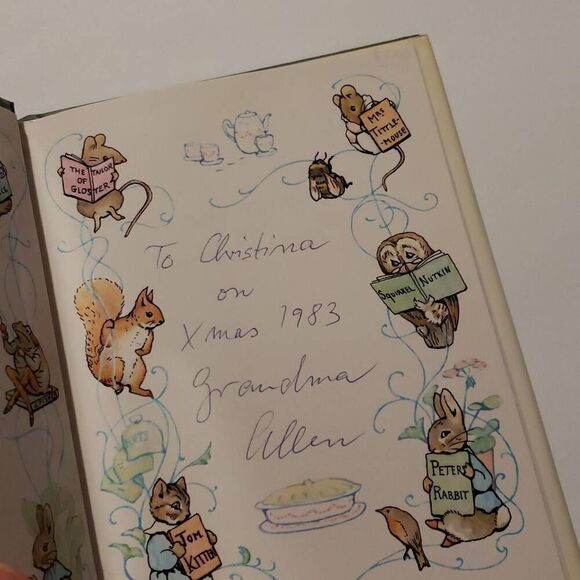 THE TAILOR
OF
GLOSTER
MRS
TITTLE-
-MOUSE
To Christina
on
Xmas 1983
Grandma
Allen
SQUIRREL NUTKIN
PETER
RABBIT
TOM
KITTEN